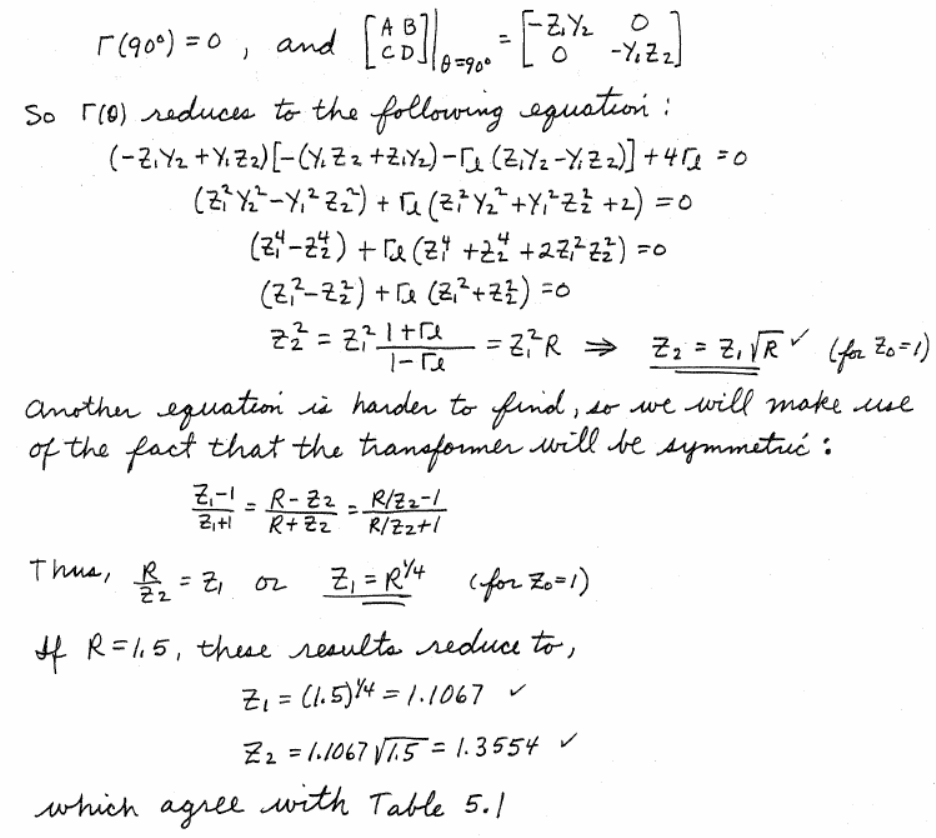 Γ(90°) = 0 , and [A B; C D]|θ=90° = [-Z₁Y₂ 0; 0 -Y₁Z₂]
So Γ(θ) reduces to the following equation :
(-Z₁Y₂ + Y₁Z₂)[-(Y₁Z₂ + Z₁Y₂) - Γℓ (Z₁Y₂ - Y₁Z₂)] + 4Γℓ = 0
(Z₁²Y₂² - Y₁²Z₂²) + Γℓ (Z₁²Y₂² + Y₁²Z₂² + 2) = 0
(Z₁⁴ - Z₂⁴) + Γℓ (Z₁⁴ + Z₂⁴ + 2Z₁²Z₂²) = 0
(Z₁² - Z₂²) + Γℓ (Z₁² + Z₂²) = 0
Z₂² = Z₁² (1+Γℓ)/(1-Γℓ) = Z₁²R ⇒ Z₂ = Z₁√R ✓ (for Z₀=1)
Another equation is harder to find, so we will make use
of the fact that the transformer will be symmetric :
(Z₁-1)/(Z₁+1) = (R-Z₂)/(R+Z₂) = (R/Z₂-1)/(R/Z₂+1)
Thus, R/Z₂ = Z₁ or Z₁ = R^1/4 (for Z₀=1)
If R = 1.5, these results reduce to,
Z₁ = (1.5)^1/4 = 1.1067 ✓
Z₂ = 1.1067 √1.5 = 1.3554 ✓
which agree with Table 5.1